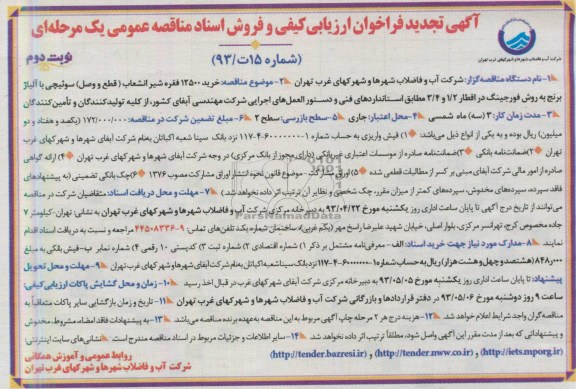 آگهی تجدید فراخوان ارزیابی کیفی و فروش اسناد مناقصه عمومی یک مرحله‌ای
(شماره ۱۵ت/۹۳)
نوبت دوم
شرکت آب و فاضلاب شهرها و شهرکهای غرب تهران
۱-نام دستگاه مناقصه‌گزار: شرکت آب و فاضلاب شهرها و شهرکهای غرب تهران ۲-موضوع مناقصه: خرید ۱۲۵۰۰ فقره شیر انشعاب (قطع و وصل) سوئیچی با آلیاژ
برنج به روش فورجینگ در اقطار ۱/۲ و ۳/۴ مطابق استانداردهای فنی و دستورالعمل‌های اجرایی شرکت مهندسی آبفای کشور، از کلیه تولیدکنندگان و تأمین‌کنندگان
۳-مدت زمان کار: ۳ (سه) ماه شمسی ۴-محل اعتبار: جاری ۵-سطح بازرسی: سطح ۲ ۶-مبلغ تضمین شرکت در مناقصه: ۱۷۲/۰۰۰/۰۰۰ (یکصد و هفتاد و دو
میلیون) ریال بوده و به یکی از انواع ذیل می‌باشد: ۱) فیش واریزی به حساب شماره ۱-۶۰۰۰۰۰۰-۴-۱۱۷ نزد بانک سینا شعبه اکباتان بنام شرکت آبفای شهرها و شهرکهای غرب
تهران ۲) ضمانتنامه بانکی ۳) ضمانتنامه صادره از موسسات اعتباری غیربانکی (دارای مجوز از بانک مرکزی) در وجه شرکت آبفای شهرها و شهرکهای غرب تهران ۴) ارائه گواهی
صادره از امور مالی شرکت آبفای مبنی بر کسر از مطالبات قطعی شده ۵) اوراق مشارکت - موضوع قانون نحوه انتشار اوراق مشارکت مصوب ۱۳۷۶ ۶) چک بانکی تضمینی (به پیشنهادهای
فاقد سپرده، سپرده‌های مخدوش، سپرده‌های کمتر از میزان مقرر، چک شخصی و نظایر آن ترتیب اثر داده نخواهد شد.) ۷-مهلت و محل دریافت اسناد: متقاضیان شرکت در مناقصه
می‌توانند از تاریخ درج آگهی تا پایان ساعت اداری روز یکشنبه مورخ ۹۳/۰۴/۲۲ به دبیرخانه مرکزی شرکت آب و فاضلاب شهرها و شهرکهای غرب تهران به نشانی: تهران- کیلومتر ۷
جاده مخصوص کرج، تهرانسر مرکزی، بلوار اصلی، خیابان شهید علیرضا راسخ مهر (یکم غربی)، ساختمان شماره یک، تلفن‌های تماس: ۹-۴۴۵۰۸۳۳۶ مراجعه و نسبت به دریافت اسناد اقدام
نمایند ۸-مدارک مورد نیاز جهت خرید اسناد: الف- معرفی‌نامه مشتمل بر ذکر ۱) شماره اقتصادی ۲) شماره ثبت ۳) کدپستی ۱۰ رقمی ۴) شماره نمابر ب-فیش بانکی به مبلغ
۸۴۸/۰۰۰ (هشتصد و چهل و هشت هزار) ریال به حساب شماره ۱-۶۰۰۰۰۰۰-۴-۱۱۷ نزد بانک سینا شعبه اکباتان بنام شرکت آبفای شهرها و شهرکهای غرب تهران ۹-مهلت و محل تحویل
پیشنهاد: تا پایان ساعت اداری روز یکشنبه مورخ ۹۳/۰۵/۰۵ به دبیرخانه مرکزی شرکت آبفای شهرها و شهرکهای غرب در قبال اخذ رسید ۱۰-زمان و محل گشایش پاکات ارزیابی کیفی:
ساعت ۹ روز دوشنبه مورخ ۹۳/۰۵/۰۶ در دفتر قراردادها و بازرگانی شرکت آب و فاضلاب شهرها و شهرکهای غرب تهران ۱۱-تاریخ و زمان بازگشایی سایر پاکات متعاقباً به
مناقصه‌گران واجد شرایط اعلام خواهد شد. ۱۲-هزینه درج هر ۲ مرحله چاپ آگهی مربوط به این مناقصه به عهده برنده مناقصه می‌باشد. ۱۳-به پیشنهادات فاقد امضاء، مشروط، مخدوش
و پیشنهاداتی که بعد از مدت مقرر این آگهی واصل شود، مطلقاً ترتیب اثر داده نخواهد شد. ۱۴-سایر اطلاعات و جزئیات مربوط در اسناد مناقصه مندرج است. نشانی‌های سایت اینترنتی:
(http://iets.mporg.ir) و (http://tender.mw.co.ir) و (http://tender.bazresi.ir)
روابط عمومی و آموزش همگانی
شرکت آب و فاضلاب شهرها و شهرکهای غرب تهران
ParsNamadData